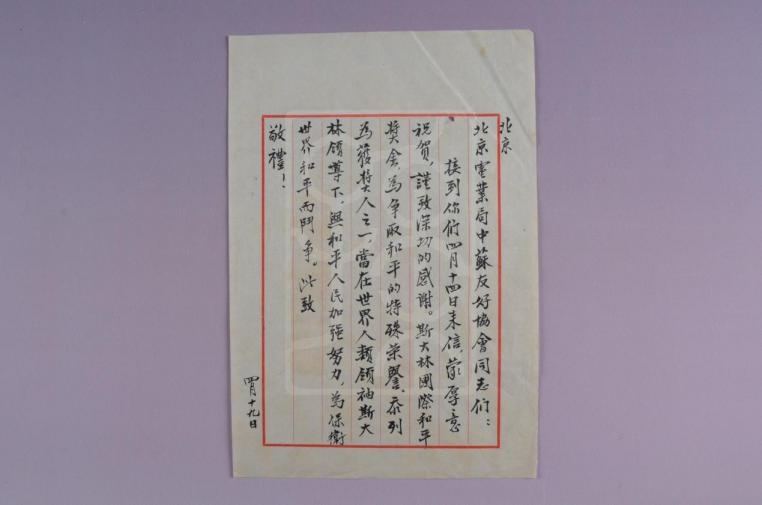 北京
北京電業局中蘇友好協會同志們：
接到你們四月十四日来信，蒙厚意
祝賀，謹致深切的感謝。斯大林國際和平
獎金，為爭取和平的特殊荣譽，忝列
為獲獎人之一，當在世界人類領袖斯大
林領導下，與和平人民加强努力，為保衛
世界和平而鬥爭。此致
敬禮！
四月十九日